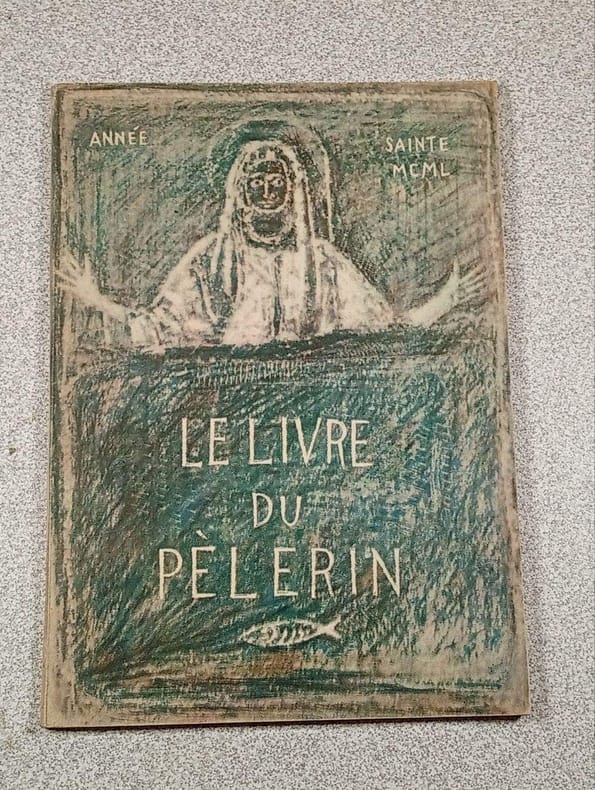 ANNÉE
SAINTE
MCML
LE LIVRE
DU
PÈLERIN